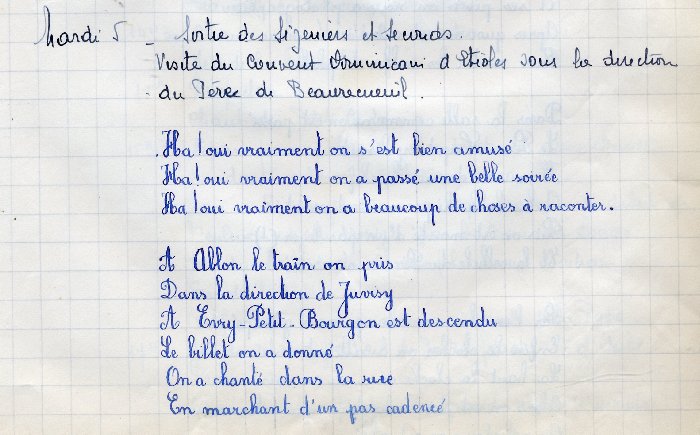 Mardi 5 - Sortie des Sizeniers et Seconds.
Visite du Couvent Dominicain d'Etioles sous la direction
du Père de Beaurecueil.
Ha ! oui vraiment on s'est bien amusé
Ha ! oui vraiment on a passé une belle soirée
Ha ! oui vraiment on a beaucoup de choses à raconter.
A Ablon le train on pris
Dans la direction de Juvisy
A Evry-Petit-Bourgon est descendu
Le billet on a donné
On a chanté dans la rue
En marchant d'un pas cadencé